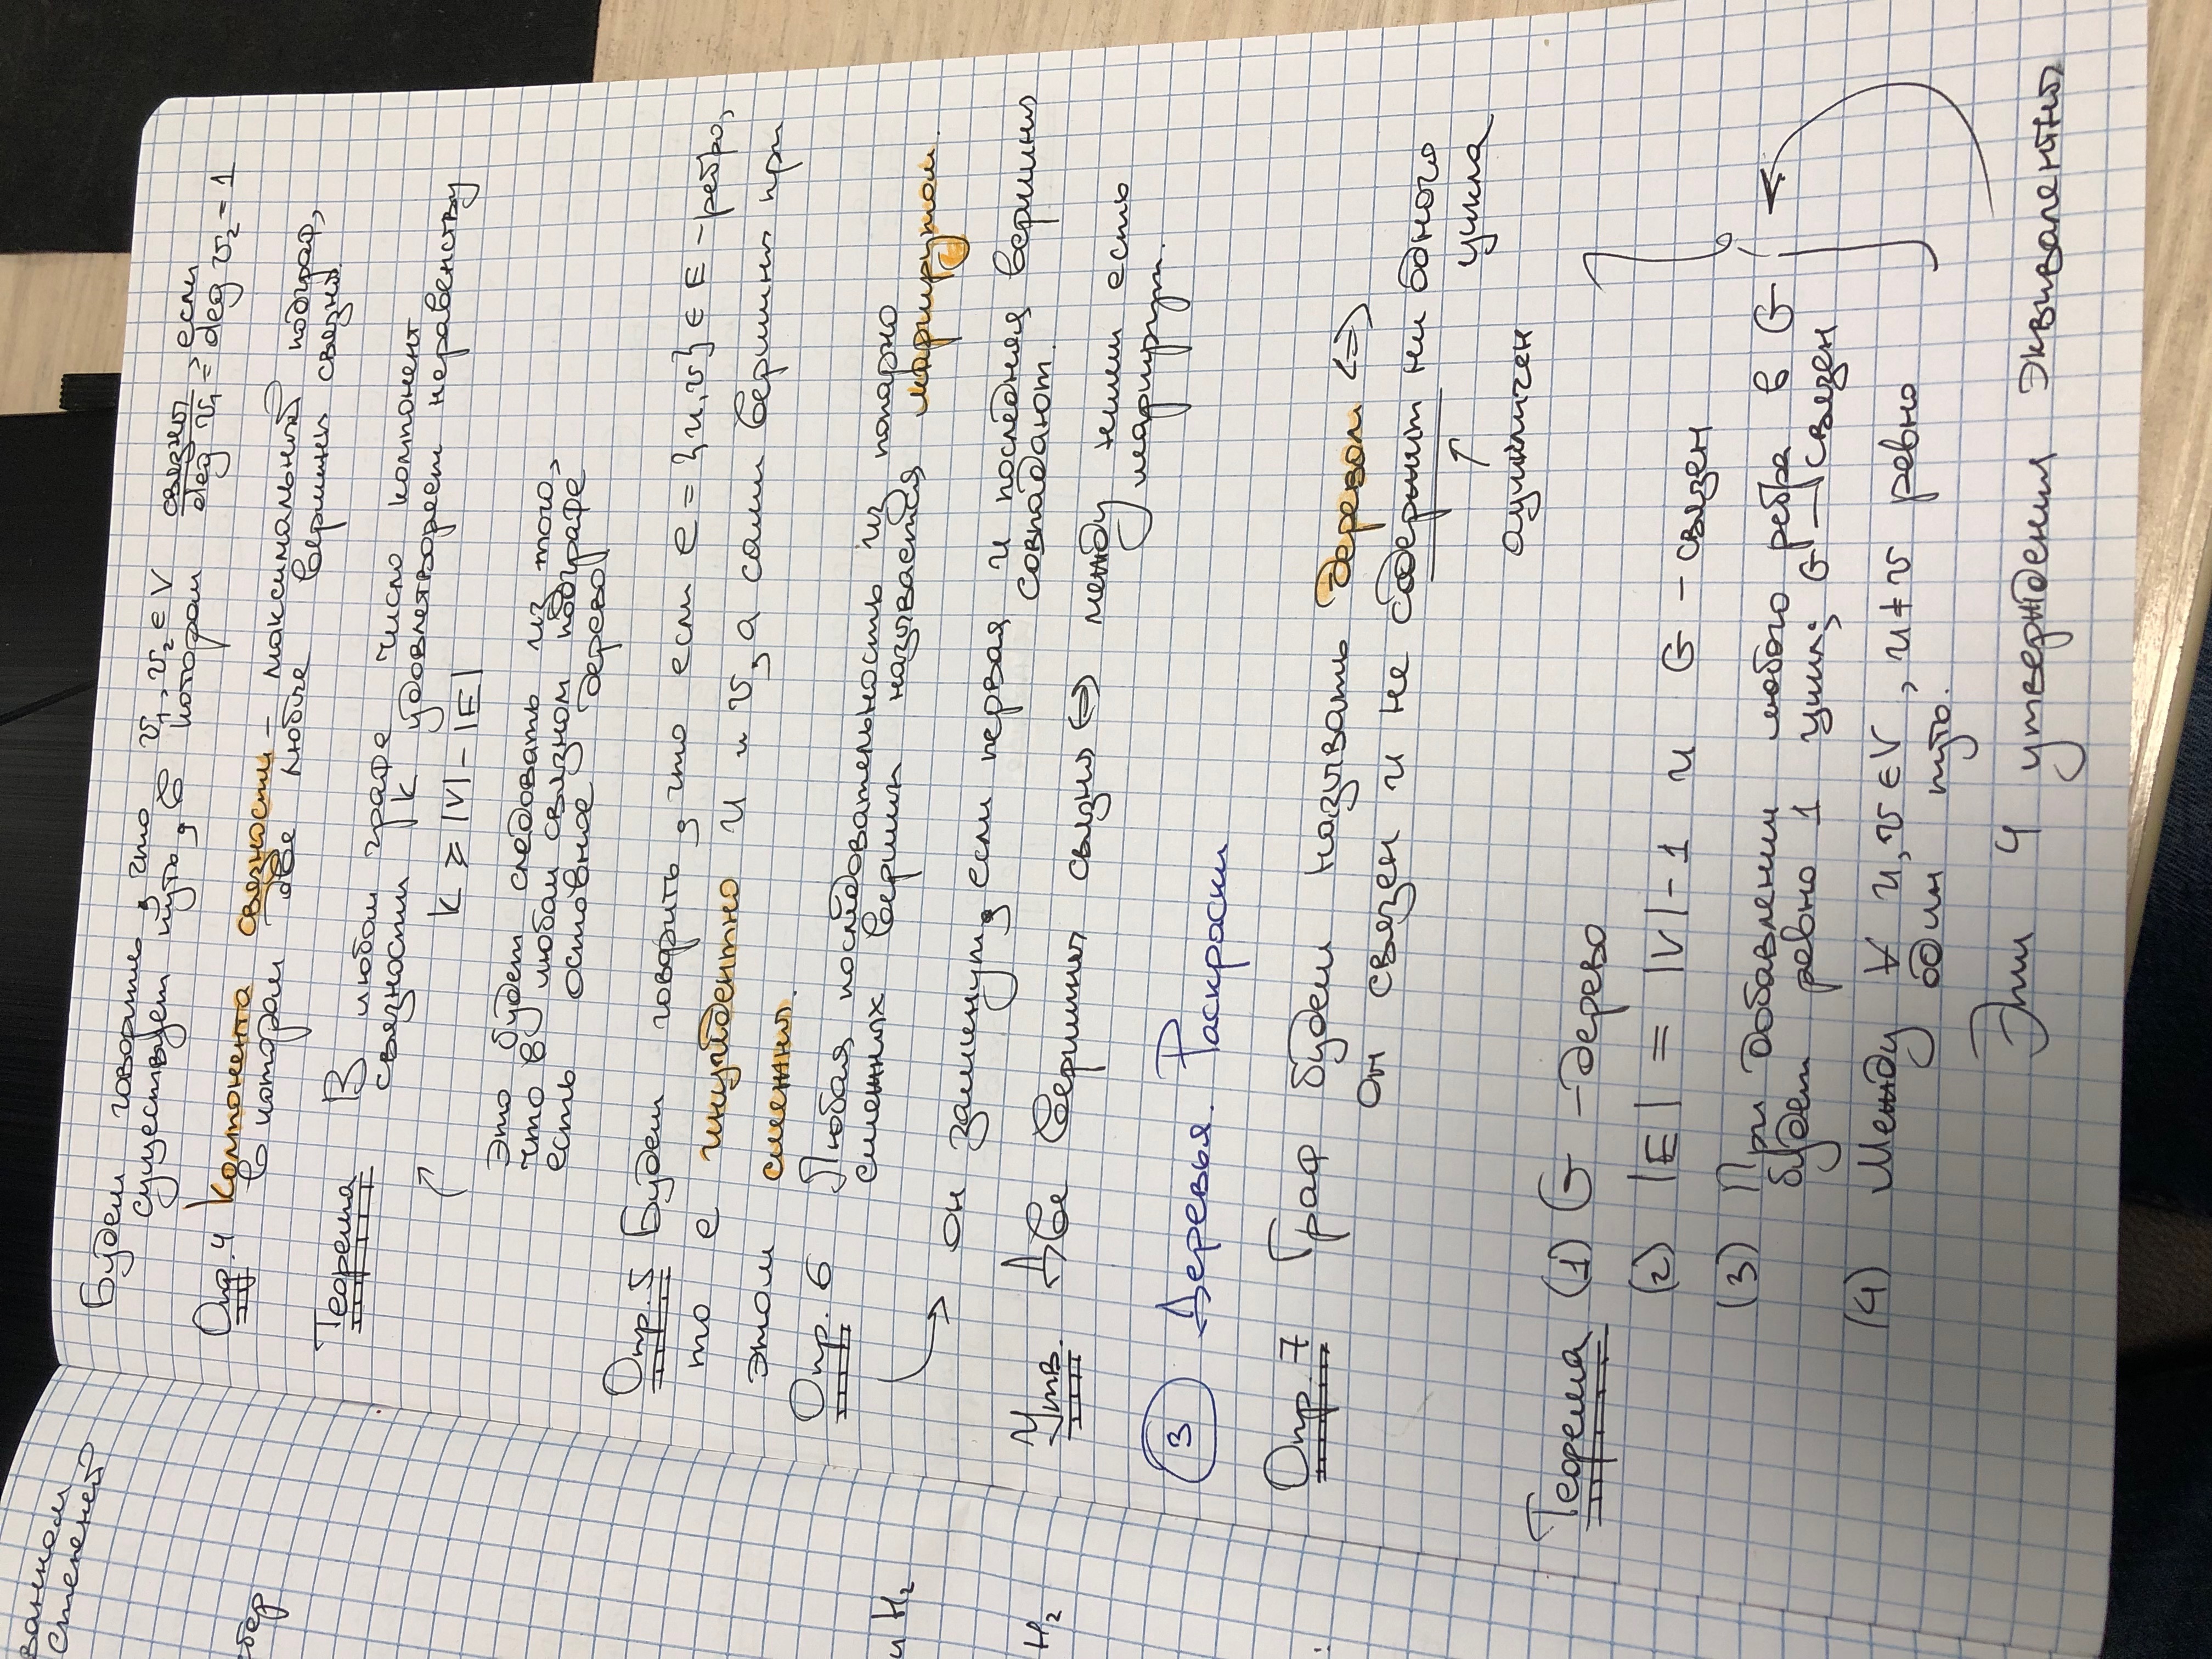 ванном
степеней
бер
и H₂
H₂
Будем говорить, что v₁, v₂ ∈ V связны, если
существует путь, в котором deg v₁ = deg v₂ = 1
Опр. 4 Компонента связности – максимальный подграф,
в котором две любые вершины связны.
Теорема В любом графе число компонент
связности k удовлетворяет неравенству
k ⩾ |V| – |E|
Это будет следовать из того,
что в любом связном подграфе
есть остовное дерево
Опр. 5 Будем говорить, что если e = {u, v} ∈ E – ребро,
то e инцидентно u и v, а сами вершины при
этом смежны.
Опр. 6 Любая последовательность из попарно
смежных вершин называется маршрутом.
он замкнут, если первая и последняя вершины
совпадают.
Утв. Две вершины связны ⇔ между ними есть
маршрут.
3 Деревья. Раскраски
Опр. 7 Граф будем называть деревом ⇔
он связен и не содержит ни одного
цикла
ацикличен
Теорема (1) G – дерево
(2) |E| = |V| - 1 и G – связен
(3) При добавлении любого ребра в G
будет ровно 1 цикл; G – связен
(4) Между ∀ u, v ∈ V, u ≠ v ровно
один путь.
Эти 4 утверждения эквивалентны